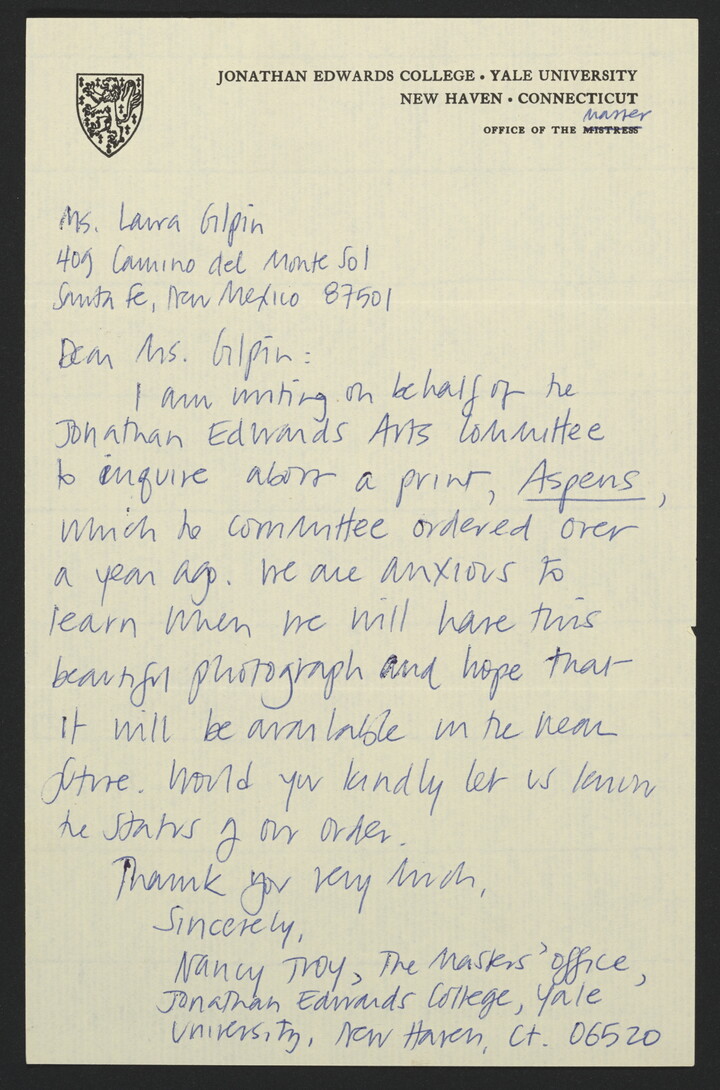 JONATHAN EDWARDS COLLEGE • YALE UNIVERSITY
NEW HAVEN • CONNECTICUT
Master
OFFICE OF THE MISTRESS
Ms. Laura Gilpin
409 Camino del Monte Sol
Santa Fe, New Mexico 87501
Dear Ms. Gilpin:
I am writing on behalf of the
Jonathan Edwards Arts Committee
to inquire about a print, Aspens,
which the committee ordered over
a year ago. We are anxious to
learn when we will have this
beautiful photograph and hope that
it will be available in the near
future. Would you kindly let us know
the status of our order.
Thank you very much,
Sincerely,
Nancy Troy, The Masters' Office,
Jonathan Edwards College, Yale
University, New Haven, Ct. 06520